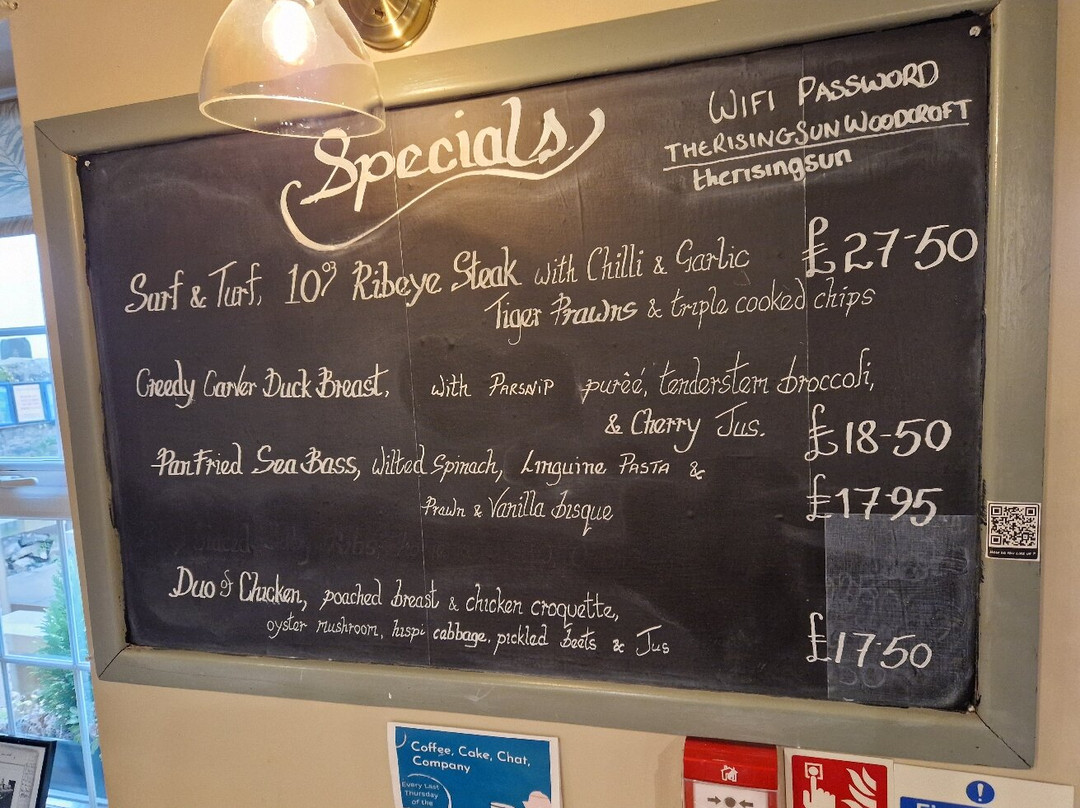 Specials
WIFI PASSWORD
THERISINGSUNWOODCROFT
therisingsun
Surf & Turf, 10oz Ribeye Steak with Chilli & Garlic £27-50
Tiger Prawns & triple cooked chips
Creedy Carver Duck Breast, with PARSNIP purêé, tenderstem broccoli,
& Cherry Jus. £18-50
Pan Fried Sea Bass, Wilted Spinach, Linguine PASTA &
Prawn & Vanilla bisque £17.95
Duo of Chicken, poached breast & chicken croquette,
oyster mushroom, hispi cabbage, pickled Beets & Jus £17.50
Coffee, Cake, Chat,
Company
Every Last
Thursday
of the